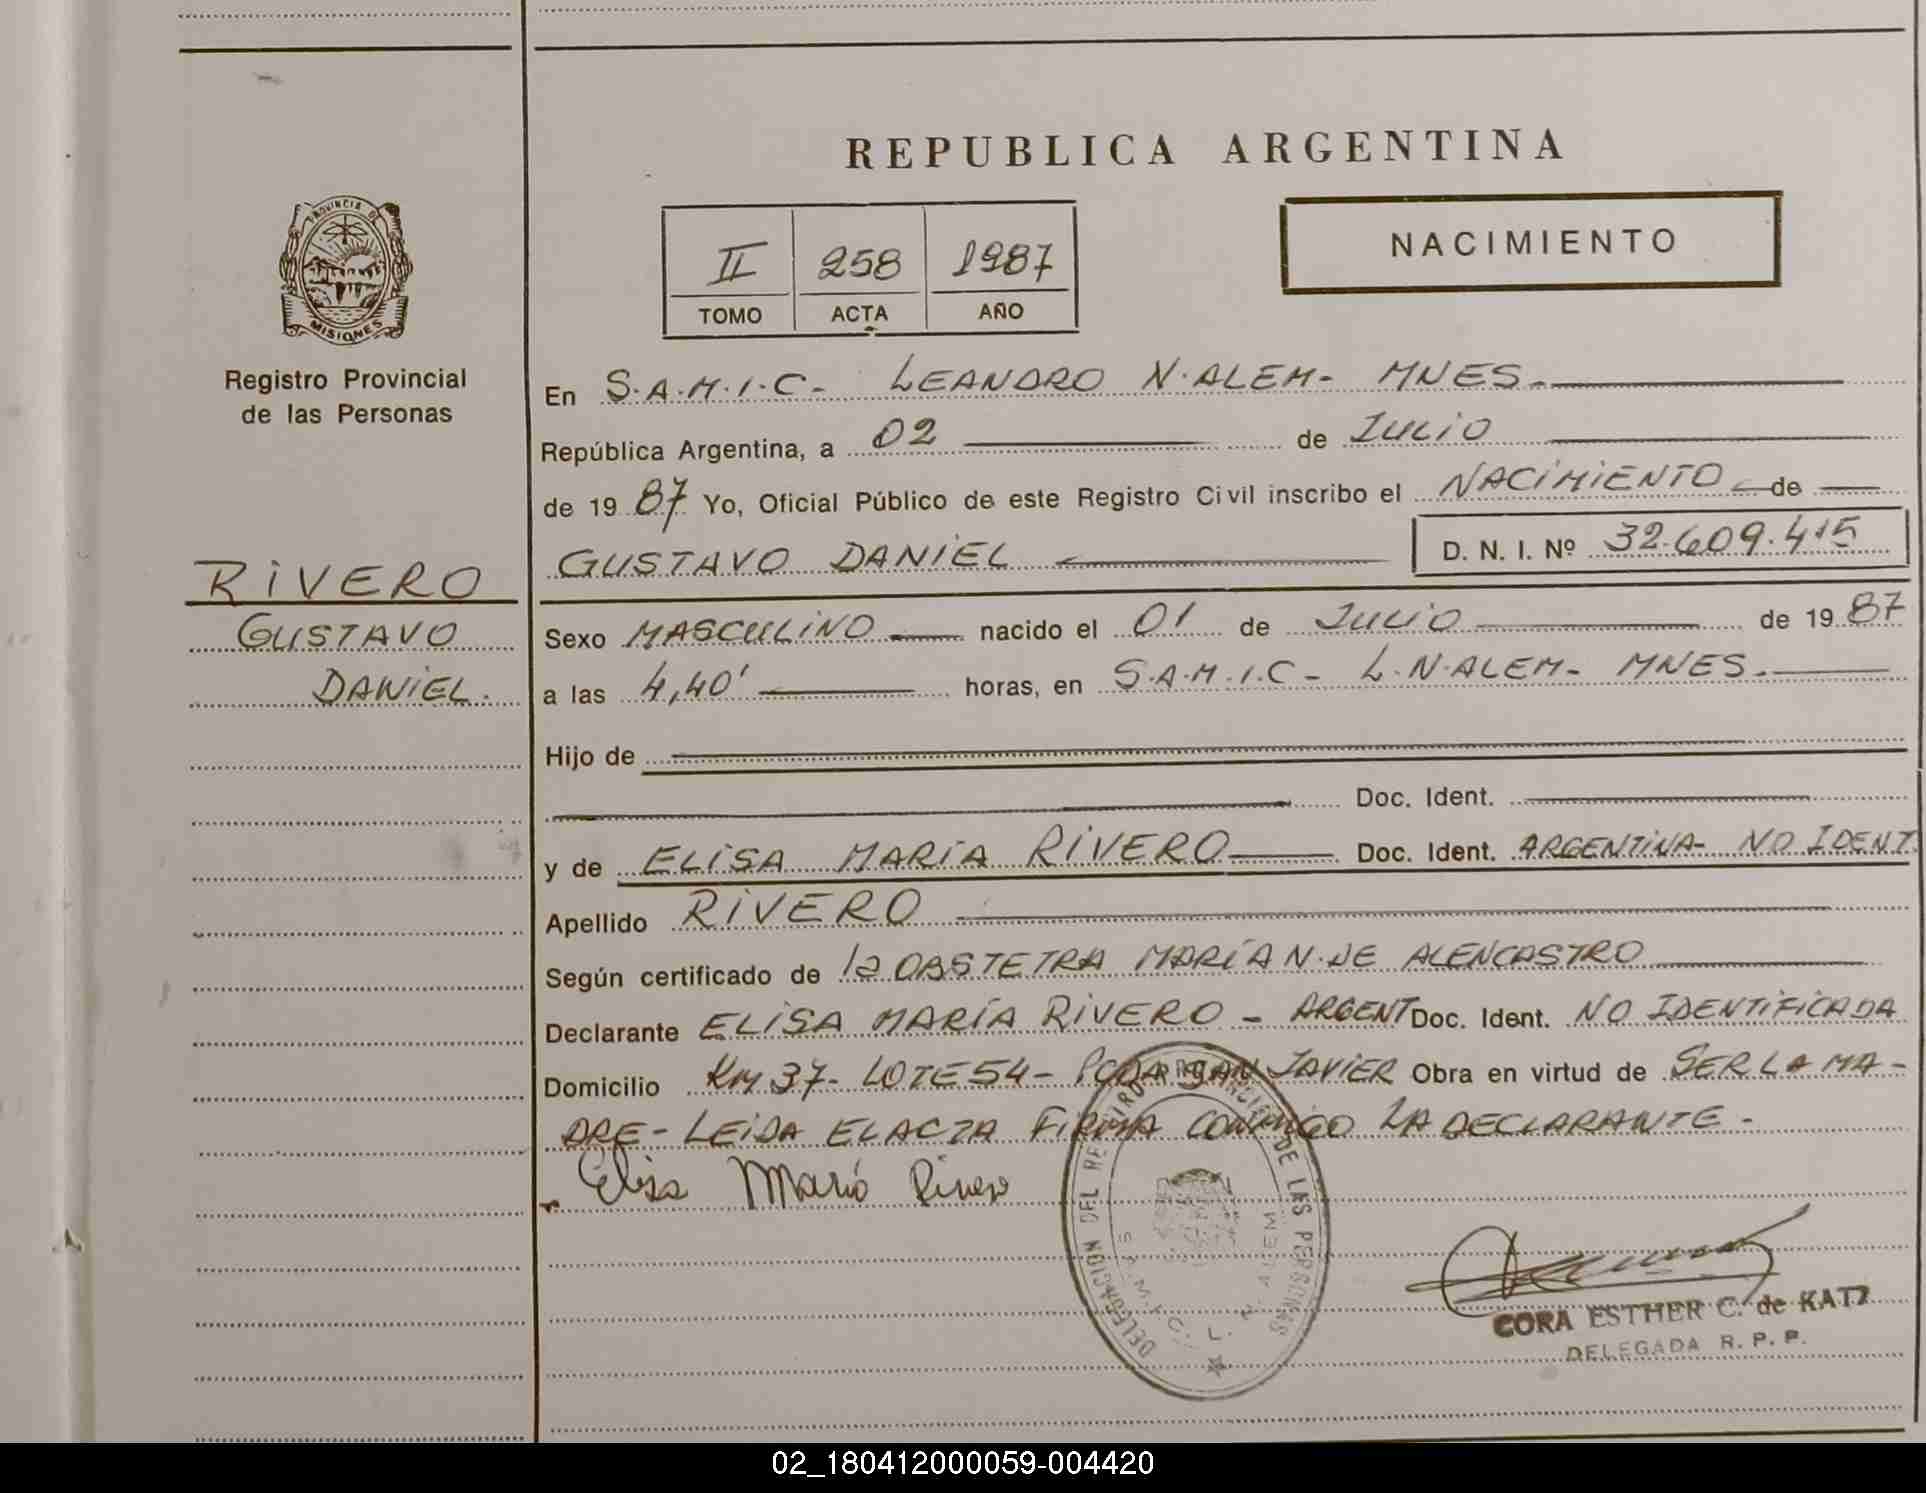 REPUBLICA ARGENTINA
PROVINCIA DE
MISIONES
Registro Provincial
de las Personas
II 258 1987
TOMO ACTA AÑO
NACIMIENTO
En S.A.M.I.C- LEANDRO N.ALEM- MNES.
República Argentina, a 02 de JULIO
de 19 87 Yo, Oficial Público de este Registro Civil inscribo el NACIMIENTO de
GUSTAVO DANIEL D. N. I. Nº 32.609.415
RIVERO
GUSTAVO
DANIEL.
Sexo MASCULINO nacido el 01 de JULIO de 19 87
a las 4,40' horas, en S.A.M.I.C- L.N.ALEM- MNES.
Hijo de
Doc. Ident.
y de ELISA MARÍA RIVERO Doc. Ident. ARGENTINA- NO IDENT.
Apellido RIVERO
Según certificado de la OBSTETRA MARÍA N. DE ALENCASTRO
Declarante ELISA MARÍA RIVERO - ARGENT Doc. Ident. NO IDENTIFICADA
Domicilio KM 37- LOTE 54- PCDA SAN JAVIER Obra en virtud de SER LA MA-
DRE- LEIDA EL ACTA FIRMA CONMIGO LA DECLARANTE-
Elisa María Rivero
DELEGACION DEL REGISTRO PROVINCIAL DE LAS PERSONAS
S.A.M.I.C. L. N. ALEM
CORA ESTHER C. de KATZ
DELEGADA R. P. P.
02_180412000059-004420